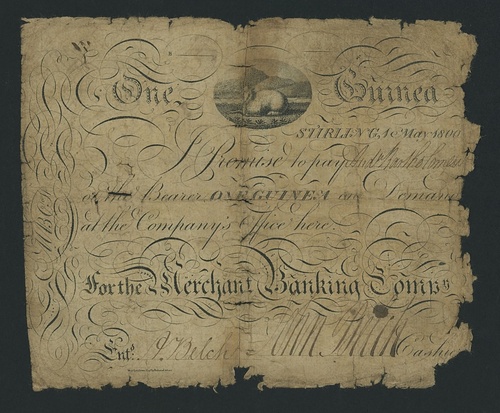 One Guinea
STIRLING, 10 May 1800
I Promise to pay
or the Bearer ONE GUINEA on Deman
at the Company's Office here
For the Merchant Banking Compy
Entd. J. Belch
Cashi